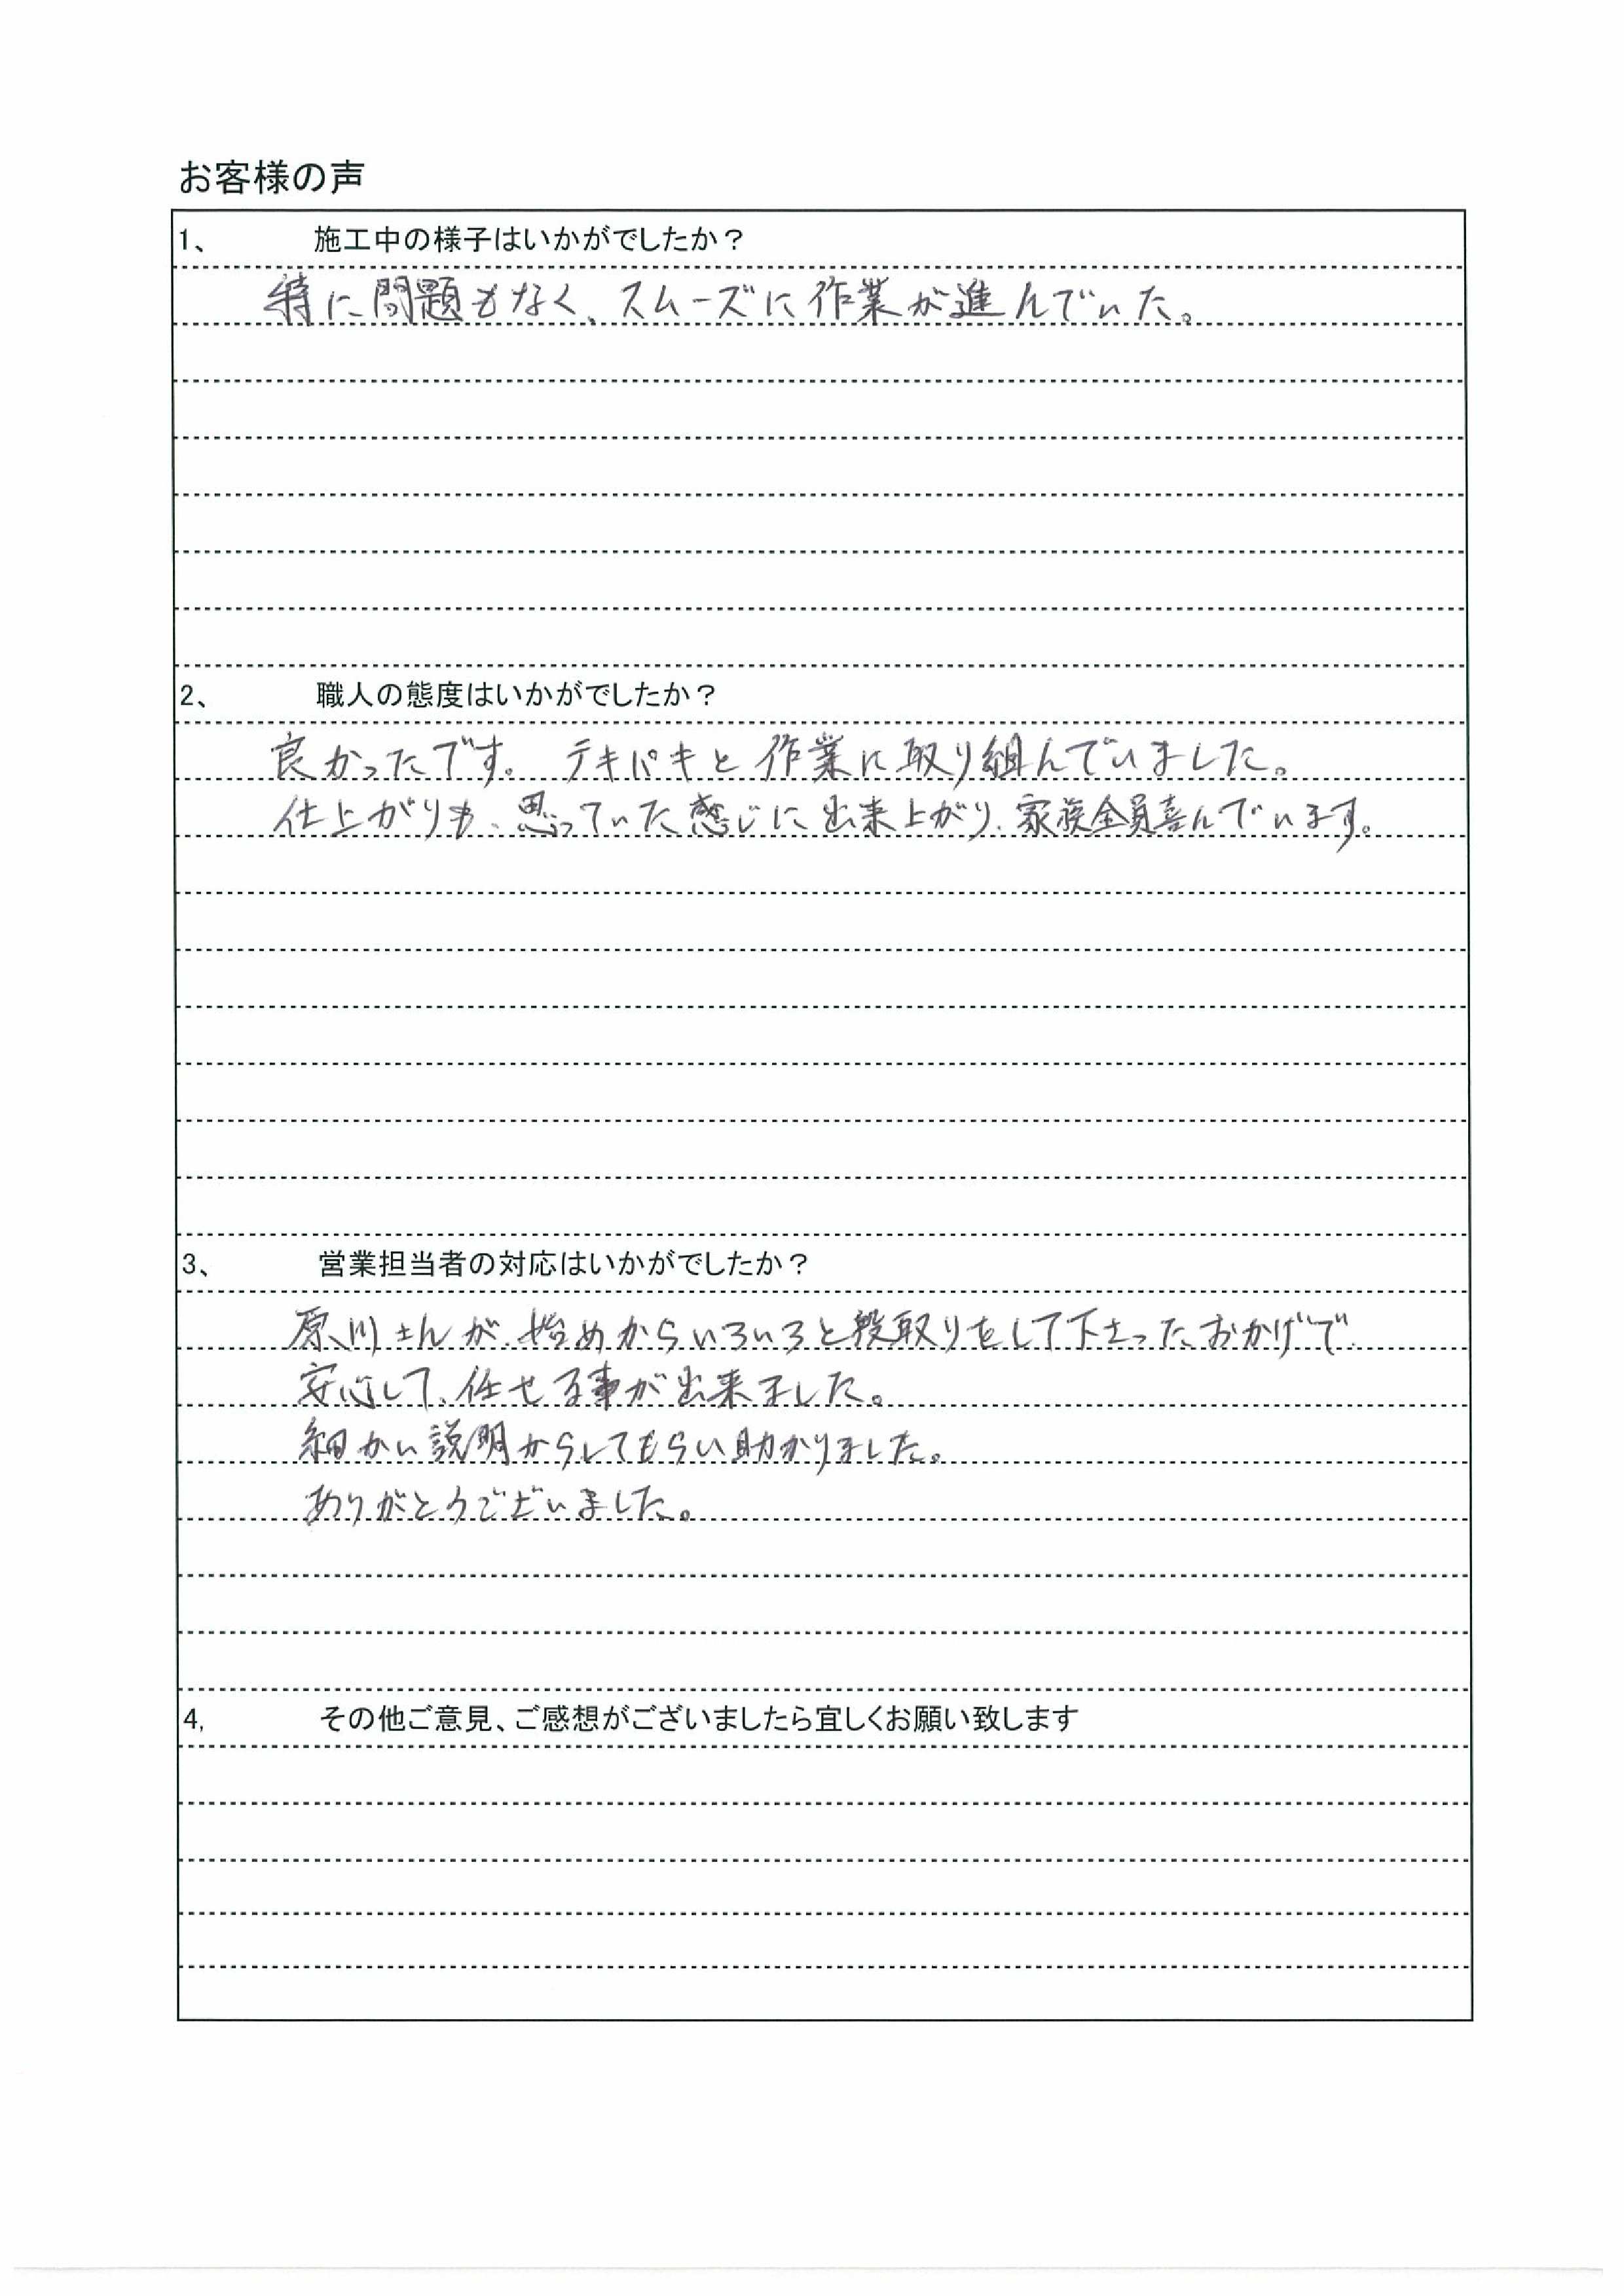 お客様の声
1、 施工中の様子はいかがでしたか？
特に問題もなく、スムーズに作業が進んでいた。
2、 職人の態度はいかがでしたか？
良かったです。テキパキと作業に取り組んでいました。
仕上がりも、思っていた感じに出来上がり、家族全員喜んでいます。
3、 営業担当者の対応はいかがでしたか？
原川さんが、始めからいろいろと段取りをして下さったおかげで、
安心して、任せる事が出来ました。
細かい説明からしてもらい助かりました。
ありがとうございました。
4, その他ご意見、ご感想がございましたら宜しくお願い致します